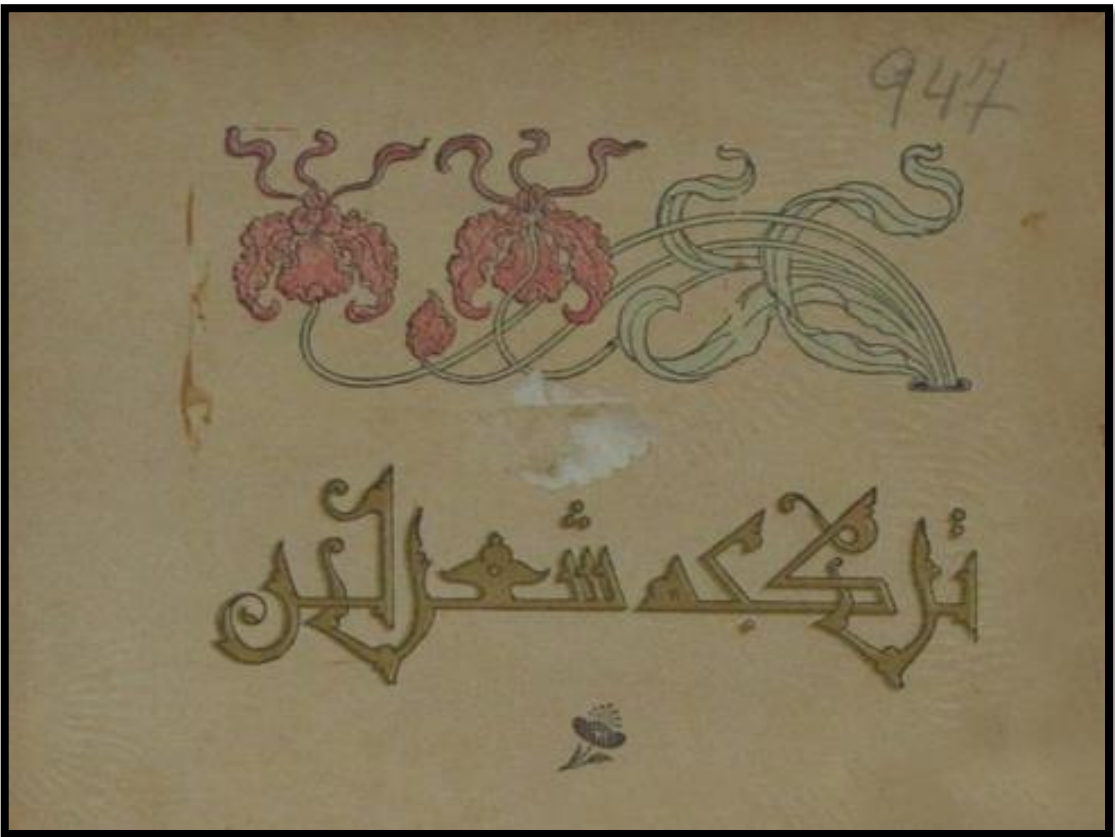 947
تركجه شعرلر